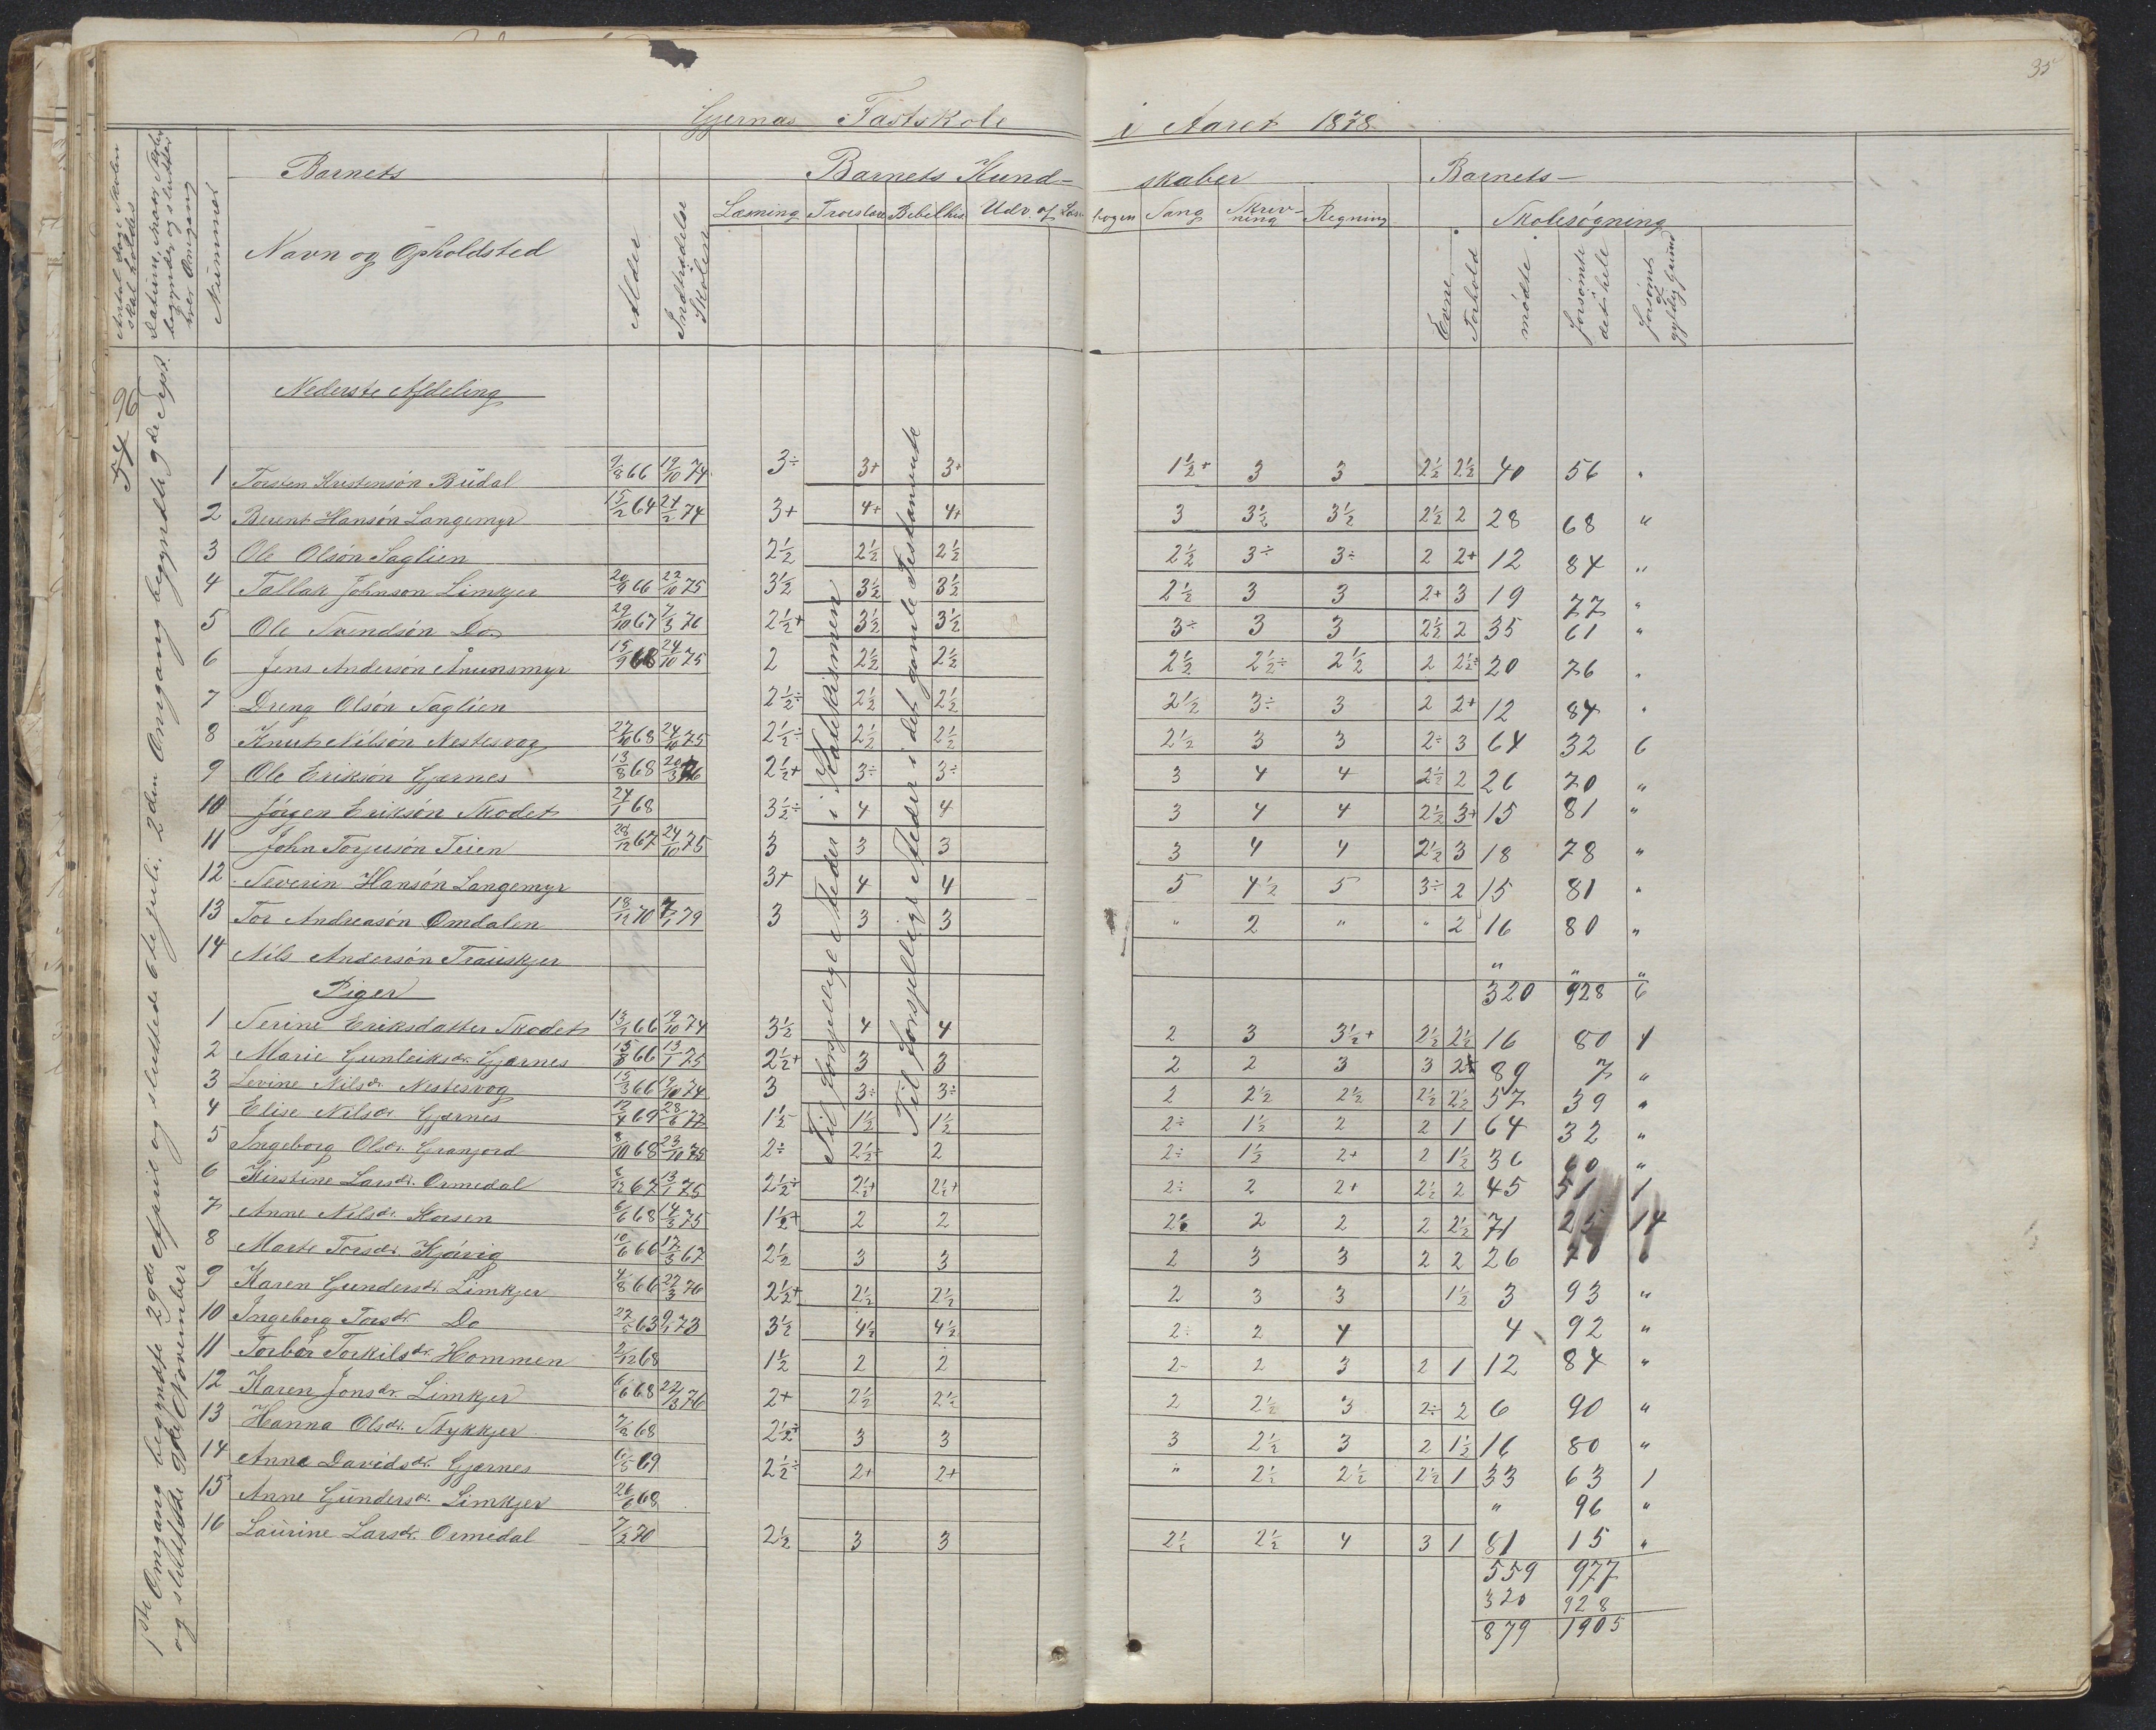 35
Gjernæs Fastskole i Aaret 1878
Antal dage Skolen skal holdes
Datum, naar Skolen begynder og slutter hver Omgang
Nummer
Barnets
Navn og Opholdsted
Alder
Indtrædelse Skolen
Barnets Kundskaber
Læsning Troeslære Bibelhis. Udv. af Læsebogen Sang Skrivning Regning
Barnets
Evne
Forhold
Skolesøgning
mødte
forsömte det hele
forsömt af gyldig Grund
54 96
1ste Omgang begyndte 29de April og sluttede 6te juli. 2den Omgang begyndte 9de Sept.
og sluttede 9de November
Til forsjellige Steder i Katekismen
Til forsjellige Steder i det gamle Testamente
Nederste Afdeling
1 Torsten Kristensön Büdal 9/8 66 19/10 74 3÷ 3+ 3+ 1½+ 3 3 2½ 2½ 40 56 "
2 Berent Hansön Langemyr 15/2 64 27/2 74 3+ 4+ 4+ 3 3½ 3½ 2½ 2 28 68 "
3 Ole Olsön Saglien 2½ 2½ 2½ 2½ 3÷ 3÷ 2 2+ 12 84 "
4 Tallak Johnson Limkjer 20/9 66 22/10 75 3½ 3½ 3½ 2½ 3 3 2+ 3 19 77 "
5 Ole Svendsön Do 29/10 67 7/3 76 2½+ 3½ 3½ 3÷ 3 3 2½ 2 35 61 "
6 Jens Andersön Ånunsmyr 15/9 68 24/10 75 2 2½ 2½ 2½ 2½÷ 2½ 2 2½÷ 20 76 "
7 Dreng Olsön Saglien 2½÷ 2½ 2½ 2½ 3÷ 3 2 2+ 12 84 "
8 Knut Nilsön Nestesvog 27/10 68 24/10 75 2½÷ 2½ 2½ 2½ 3 3 2÷ 3 64 32 6
9 Ole Eriksön Gjærnes 13/8 68 20/3 76 2½+ 3÷ 3÷ 3 4 4 2½ 2 26 70 "
10 Jörgen Eriksön Skodet 24/1 68 3½÷ 4 4 3 4 4 2½ 3+ 15 81 "
11 John Torjusön Teien 28/12 67 24/10 75 3 3 3 3 4 4 2½ 3 18 78 "
12 Severin Hansön Langemyr 3+ 4 4 5 4½ 5 3÷ 2 15 81 "
13 Tor Andreasön Omdalen 18/12 70 7/1 79 3 3 3 " 2 " " 2 16 80 "
14 Nils Andersön Trauskjer " " "
320 928 6
Piger
1 Serine Eriksdatter Skodet 13/2 66 19/10 74 3½ 4 4 2 3 3½+ 2½ 2½ 16 80 4
2 Marie Gunleiksdr. Gjærnes 15/8 66 13/1 75 2½+ 3 3 2 2 3 3 2+ 89 7 "
3 Levine Nilsdr. Nestesvog 15/3 66 19/10 74 3 3÷ 3÷ 2 2½ 2½ 2½ 2½ 57 39 "
4 Elise Nilsdr Gjærnes 12/4 69 28/6 77 1½ 1½ 1½ 2÷ 1½ 2 2 1 64 32 "
5 Ingeborg Olsdr. Granjord 8/10 68 23/10 75 2÷ 2½÷ 2 2÷ 1½ 2+ 2 1½ 36 60 "
6 Kirstine Larsdr. Ormedal 8/12 67 13/1 75 2½÷ 2½+ 2½+ 2÷ 2 2+ 2½ 2 45 51 1
7 Anne Nilsdr. Korsen 6/6 68 14/3 75 1½+ 2 2 2½ 2 2 2 2½ 71 25 14
8 Marte Torsdr. Kjøvig 10/6 66 17/3 67 2½ 3 3 2 3 3 2 2 26 70 "
9 Karen Gundersdr. Limkjer 4/8 66 22/3 76 2½+ 2½ 2½ 2 3 3 1½ 3 93 "
10 Ingeborg Torsdr. Do 27/5 63 9/1 73 3½ 4½ 4½ 2÷ 2 4 4 92 "
11 Torbör Torkilsdr. Hommen 2/12 68 1½ 2 2 2- 2 3 2 1 12 84 "
12 Karen Jonsdr. Limkjer 6/6 68 22/3 76 2+ 2½ 2½ 2 2½ 3 2÷ 2 6 90 "
13 Hanna Olsdr. Stykkjer 7/2 68 2½+ 3 3 3 2½ 3 2 1½ 16 80 "
14 Anne Davidsdr. Gjærnes 6/5 69 2½÷ 2+ 2+ " 2½ 2½ 2½ 1 33 63 1
15 Anne Gündersdr. Limkjer 26/6 68 " 96 "
16 Laurine Larsdr. Ormedal 7/2 70 2½ 3 3 2½ 2½ 4 3 1 81 15 "
559 977
320 928
879 1905